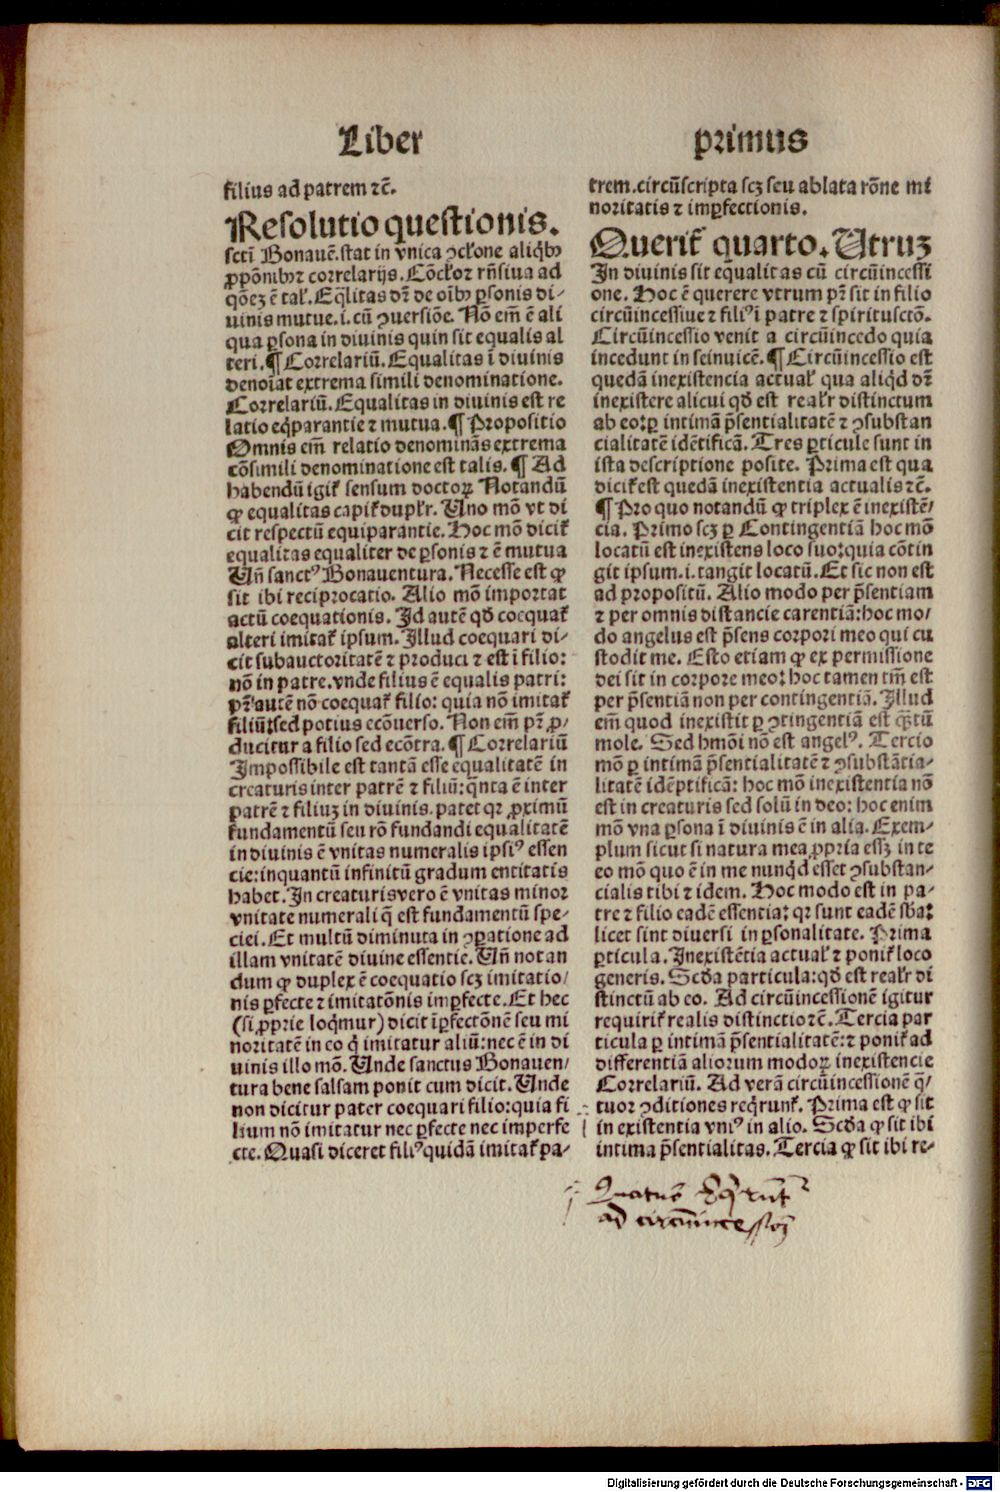 Liber primus
filius ad patrem ⁊c̄.
Resolutio questionis.
sctī Bonauē.stat in vnica ꝯcłone aliqͥbꝫ
ꝓpōnibꝫ ⁊ correlarijs. Cōcłoꝛ rn̄siua ad
qōeꝫ ē tał. Eq̄litas dr̄ de oībꝫ ꝑsonis di⸗
uinis mutue.i.cū ꝯuersiōe. Nō em̄ ē ali
qua ꝑsona in diuinis quin sit equalis al
teri. ¶ Correlariū. Equalitas ī diuinis
denoīat extrema simili denominatione.
Correlariū. Equalitas in diuinis est re
latio eq̄parantie ⁊ mutua. ¶ Propositio
Omnis em̄ relatio denominās extrema
cōsimili denominatione est talis. ¶ Ad
habendū igit᷑ sensum doctoꝝ Notandū
ꝙ equalitas capit᷑ dupłr. Uno mō vt di
cit respectū equiparantie. Hoc mō dicit᷑
equalitas equaliter de ꝑsonis ⁊ ē mutua
Un̄ sanctꝰ Bonauentura. Necesse est ꝙ
sit ibi reciprocatio. Alio mō importat
actū coequationis. Id autē qd̄ coequat᷑
alteri imitat᷑ ipsum. Illud coequari di⸗
cit subauctoritatē ⁊ produci ⁊ est ī filio:
nō in patre.vnde filius ē equalis patri:
pr̄ autē nō coequat᷑ filio: quia nō imitat᷑
filiū: sed potius ecōuerso. Non em̄ pr̄ ꝓ⸗
ducitur a filio sed ecōtra. ¶ Correlariū
Impossibile est tantā esse equalitatē in
creaturis inter patrē ⁊ filiū: q̄nta ē inter
patrē ⁊ filiuꝫ in diuinis.patet qꝛ ꝓximū
fundamentū seu rō fundandi equalitatē
in diuinis ē vnitas numeralis ipsiꝰ essen
cie: inquantū infinitū gradum entitatis
habet. In creaturis vero ē vnitas minor
vnitate numerali q̄ est fundamentū spe⸗
ciei. Et multū diminuta in ꝯꝑatione ad
illam vnitatē diuine essentie. Un̄ notan
dum ꝙ duplex ē coequatio scꝫ imitatio⸗
nis ꝑfecte ⁊ imitatōnis imꝑfecte. Et hec
(si ꝓprie loqͥmur) dicit īꝑfectōnē seu mi
noritatē in eo qͥ imitatur aliū: nec ē in di
uinis illo mō. Unde sanctus Bonauen⸗
tura bene salsam ponit cum dicit. Unde
non dicitur pater coequari filio: quia fi
lium nō imitatur nec ꝑfecte nec imperfe
cte. Quasi diceret filiꝰ quidā imitat᷑ pa⸗
trem.circūscripta scꝫ seu ablata rōne mi
noritatis ⁊ imꝑfectionis.
Querit᷑ quarto. Utruꝫ
In diuinis sit equalitas cū circūincessi
one. Hoc ē querere vtrum pr̄ sit in filio
circūincessiue ⁊ filiꝰ ī patre ⁊ spiritusctō.
Circūincessio venit a circūincedo quia
incedunt in seinuicē. ¶ Circūincessio est
quedā inexistencia actuał qua aliqͥd dr̄
inexistere alicui qd̄ est reałr distinctum
ab eo: ꝑ intimā p̄sentialitatē ⁊ ꝯsubstan
cialitatē idētificā. Tres ꝑticule sunt in
ista descriptione posite. Prima est qua
dicit᷑ est quedā inexistentia actualis ⁊c̄.
¶ Pro quo notandū ꝙ triplex ē inexistē⸗
cia. Primo scꝫ ꝑ Contingentiā hoc mō
locatū est inexistens loco suo: quia cōtin
git ipsum.i.tangit locatū. Et sic non est
ad propositū. Alio modo per p̄sentiam
⁊ per omnis distancie carentiā: hoc mo⸗
do angelus est p̄sens corpori meo qui cu
stodit me. Esto etiam ꝙ ex permissione
dei sit in corpore meo: hoc tamen tm̄ est
per p̄sentiā non per contingentiā. Illud
em̄ quod inexistit ꝑ ꝯtingentiā est qͣꝫtū
mole. Sed hmōi nō est angelꝰ. Tercio
mō ꝑ intimā p̄sentialitatē ⁊ ꝯsubstātia⸗
litatē idēptificā: hoc mō inexistentia nō
est in creaturis sed solū in deo: hoc enim
mō vna ꝑsona ī diuinis ē in alia. Exem⸗
plum sicut si natura mea ꝓpria esset in te
eo mō quo ē in me nunqͥd esset ꝯsubstan⸗
cialis tibi ⁊ idem. Hoc modo est in pa⸗
tre ⁊ filio eadē essentia: qꝛ sunt eadē sb̄a:
licet sint diuersi in ꝑsonalitate. Prima
ꝑticula. Inexistētia actuał ⁊ ponit᷑ loco
generis. Scd̄a particula: qd̄ est reałr di
stinctū ab eo. Ad circūincessionē igitur
requirit᷑ realis distinctio ⁊c̄. Tercia par
ticula ꝑ intimā p̄sentialitatē: ⁊ ponit᷑ ad
differentiā aliorum modoꝝ inexistencie
Correlariū. Ad verā circūincessionē q̄⸗
tuor ꝯditiones reqͥrunt᷑. Prima est ꝙ sit
in existentia vniꝰ in alio. Scd̄a ꝙ sit ibi
intima p̄sentialitas. Tercia ꝙ sit ibi re⸗
Quatuor
ad circūincessionē
Digitalisierung gefördert durch die Deutsche Forschungsgemeinschaft - DFG